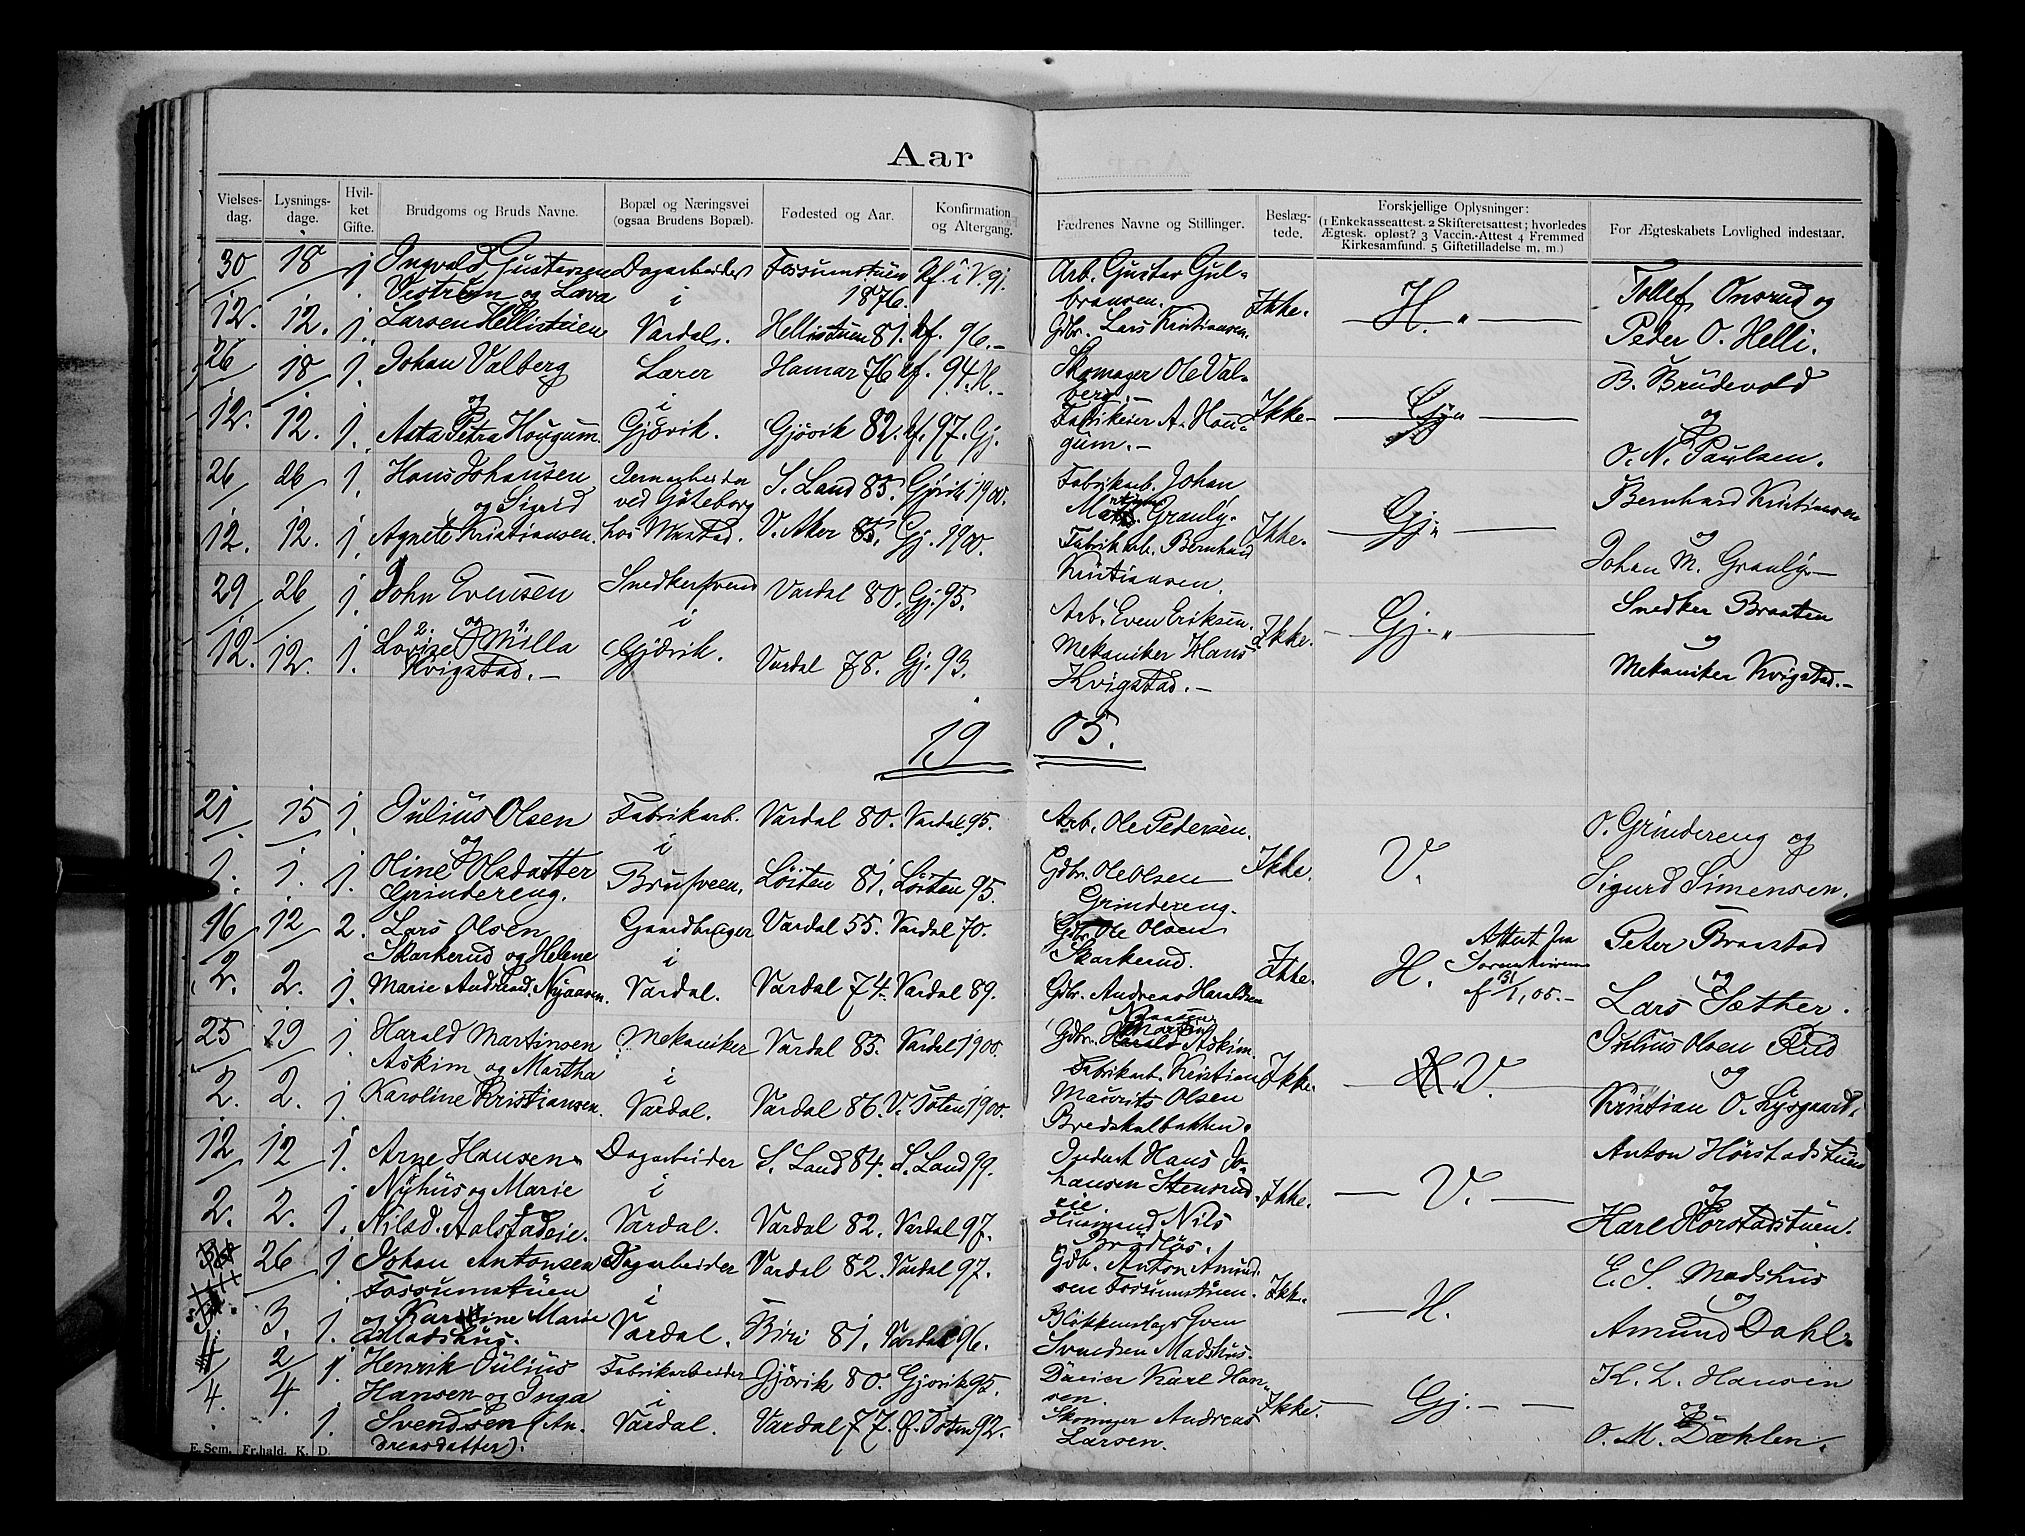 Aar
Vielses-
dag.
Lysnings-
dage.
Hvil-
ket
Gifte.
Brudgoms og Bruds Navne.
Bopæl og Næringsvei
(ogsaa Brudens Bopæl).
Fødested og Aar.
Konfirmation
og Altergang.
Fædrenes Navne og Stillinger.
Beslæg-
tede.
Forskjellige Oplysninger:
(1 Enkekasseattest. 2 Skifteretsattest; hvorledes
Ægtesk. opløst? 3 Vaccin.-Attest 4 Fremmed
Kirkesamfund. 5 Giftetilladelse m. m.)
For Ægteskabets Lovlighed indestaar.
30/12. 18/12. 1. 1.
Ingvald Gustavsen
og
Larsen Hellistuen
Dagarbeider
i
Vardal.
Fossumstuen
1876.
Hellistuen 81.
Kf. i V. 91.
Kf. 96.
Arb. Gustav Gul-
bransen.
Gdbr. Lars Kristiansen.
Ikke.
H.
Tollef Onsrud og
Peder O. Helli.
26/12. 18/12. 1. 1.
Johan Valberg
og
Asta Petra Hougum.
Lærer
i
Gjøvik.
Hamar 76
Gjøvik 82.
Kf. 94.
Kf. 97. Gj.
Skomager Ole Val-
berg.
A. Hou-
gum.
Ikke
Gj.
B. Brudevold
og
O. N. Paulsen.
26/12. 26/12. 1. 1.
Hans Johansen
og Sigrid
Agnete Kristiansen.
Jernarbeider
ved Göteborg
S. Land 85.
V. Aker 85.
Gjøvik 1900.
Gj. 1900.
Fabrikarb. Johan
Granly.
Fabrikarb. Bernhard
Kristiansen.
Ikke.
Gj.
Bernhard Kristiansen
og
Johan M. Granly.
29/12. 26/12. 1. 1.
John Evensen
og
Lovise Milla
Kvigstad.
Snedkersvend
i
Gjøvik.
Vardal 80.
Vardal 78.
Gj. 95.
Gj. 93.
Arb. Even Eriksen.
Mekaniker Hans
Kvigstad.
Ikke.
Gj.
Snedker Braaten
og
Mekaniker Kvigstad.
1905.
21/1. 15/1. 1. 1.
Julius Olsen
og
Oline Olsdatter
Grindereng.
Fabrikarb.
i
Brufveen.
Vardal 80.
Löiten 81.
Vardal 95.
Löiten 95.
Arb. Ole Pedersen.
Gdbr. Ole Olsen
Grindereng.
Ikke.
V.
O. Grindereng og
Sigurd Simensen.
16/2. 12/2. 2. 1.
Lars Olsen
Skarkerud og Helene
Marie Nyaasen.
Gaardbruger
i
Vardal.
Vardal 55.
Vardal 74.
Vardal 70.
Vardal 89.
Gdbr. Ole Olsen
Skarkerud.
Gdbr. Andreas Haraldsen
Ikke.
H.
Attest fra
Sorenskriveren
af 31/1, 05.
Peter Braastad
og
Lars Sæther.
25/2. 19/2. 1. 1.
Harald Martinsen
Askim og Martha
Karoline Kristiansen.
Mekaniker
i
Vardal.
Vardal 85.
Vardal 86.
Vardal 1900.
V. Toten 1900.
Gdbr. Martin Askim.
Fabrikarb. Kristian
Maurits Olsen
Bredskalbakken.
Ikke.
V.
Julius Olsen Rud
og
Kristian O. Lysgaard.
12/2. 12/2. 1. 1.
Arne Hansen
Nyhus og Marie
Nilsd. Aalstadeie.
Dagarbeider
i
Vardal.
S. Land 84.
Vardal 82.
S. Land 99.
Vardal 97.
Inderst Hans Jo-
hansen Stensrud-
eie.
Husmand Nils
Ikke.
V.
Anton Hörstadstuen
og
Karl Hörstadstuen.
26/3. 1. 1.
Johan Antonsen
Fossumstuen
og Marie
Madshus.
Dagarbeider
i
Vardal.
Vardal 82.
Biri 81.
Vardal 97.
Vardal 96.
Gdb. Anton Amund-
sen Fossumstuen.
Svendsen Madshus.
Ikke.
H.
E. S. Madshus
og
Amund Dahl.
2/4. 1. 1.
Henrik Julius
Hansen og Inga
Svendsen (An-
dreasdatter).
Fabrikarbeider
i
Vardal.
Gjøvik 80.
Vardal 77.
Gjøvik 95.
Ø. Toten 92.
Karl Han-
sen.
Skomager Andreas
Larsen.
Ikke.
Gj.
K. L. Hansen
og
O. M. Dæhlen.
E. Sem, Fr.hald. K. D.